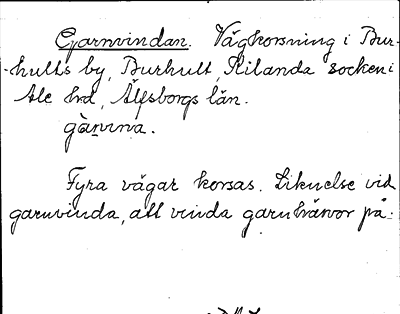 Garnvindan. Vägkorsning i Bur-
-hults by, Burhult, Kilanda socken i
Ale hd, Älfsborgs län.
gàṇvina.
Fyra vägar korsas. Liknelse vid
garnvinda, att vinda garnhärvor på.